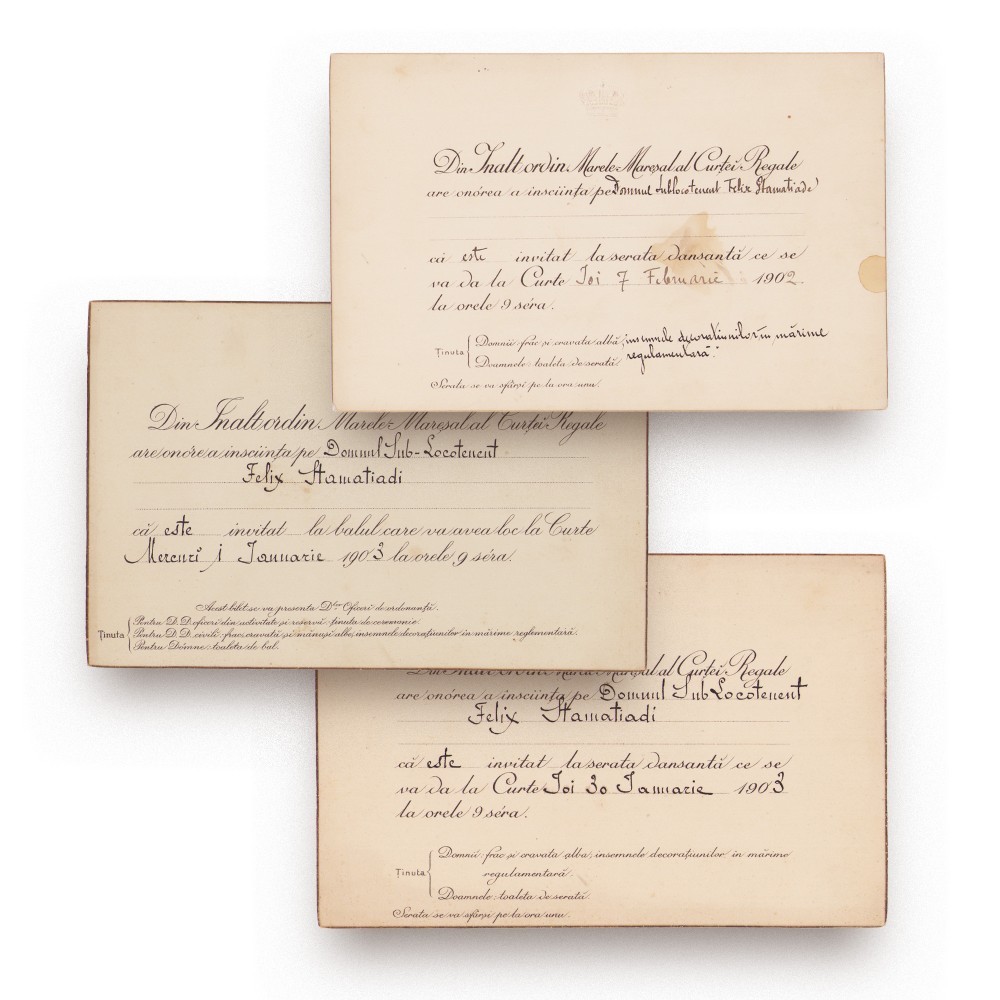 Din Inalt ordin Marele Mareșal al Curței Regale
are onórea a insciința pe Domnul sublocotenent Felix Stamatiade
că este invitat la serata dansantă ce se
va da la Curte Joi 7 Februarie 1902
la orele 9 séra.
Ținuta
Domnii: frac și cravata albă, insemnele decorațiunilor in mărime
regulamentară.
Doamnele: toaleta de serată.
Serata se va sfârși pe la ora unu.
Din Inalt ordin Marele Mareșal al Curței Regale
are onóre a insciința pe Domnul Sub-Locotenent
Felix Stamatiadi
că este invitat la balul care va avea loc la Curte
Mercuri 1 Ianuarie 1903 la orele 9 séra.
Acest bilet se va presenta D-lor Oficeri de ordonanță.
Ținuta
Pentru D.D. oficeri din activitate și reservă: ținuta de ceremonie.
Pentru D.D. civili: frac, cravată și mănuși albe, insemnele decorațiunilor in mărime reglementară.
Pentru Dómne: toaleta de bal.
Din Inalt ordin Marele Mareșal al Curței Regale
are onórea a insciința pe Domnul Sub Locotenent
Felix Stamatiadi
că este invitat la serata dansantă ce se
va da la Curte Joi 30 Ianuarie 1903
la orele 9 séra.
Ținuta
Domnii: frac și cravata alba, insemnele decorațiunilor in mărime
regulamentară.
Doamnele: toaleta de serată.
Serata se va sfârși pe la ora unu.